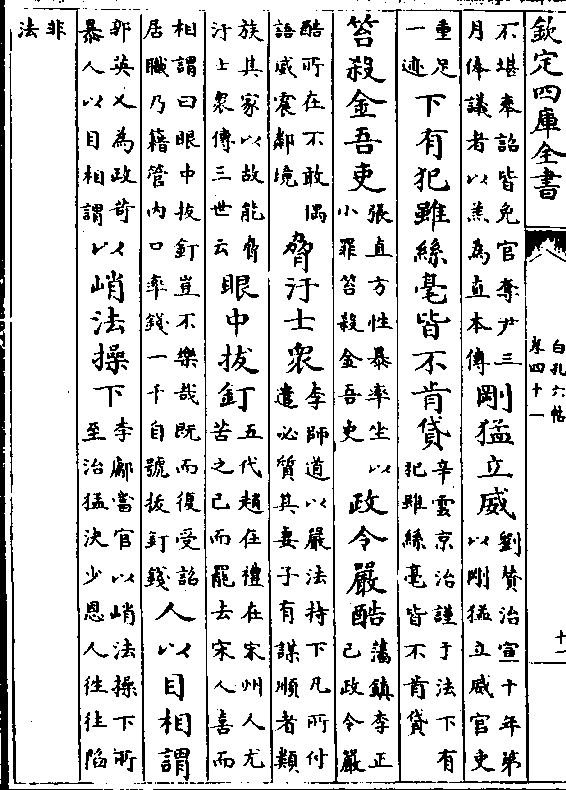 欽定四庫全書
白孔六帖
卷四十一
十一
不堪奉詔皆免官奪尹三
月俸議者以羔為直本傳
剛猛立威
劉贊治宣十年第
以剛猛立威官吏
重足
一迹
下有犯雖絲毫皆不肯貸
辛雲京治謹于法下有
犯雖絲毫皆不肯貸
笞殺金吾吏
張直方性暴率坐以
小罪笞殺金吾吏
政令嚴酷
藩鎮李正
已政令嚴
酷所在不敢偶
語威震鄰境
脅汙士衆
李師道以嚴法持下凡所付
遣必質其妻子有謀順者類
族其家以故能脅
汙士衆傳三世云
眼中拔釘
五代趙在禮在宋州人尤
苦之已而罷去宋人喜而
相謂曰眼中拔釘豈不樂哉既而復受詔
居職乃籍管内口率錢一千自號拔釘錢
人以目相謂
郭英乂為政苛
暴人以目相謂
以峭法操下
李鄘當官以峭法操下所
至治猛決少恩人往往陷
非
法